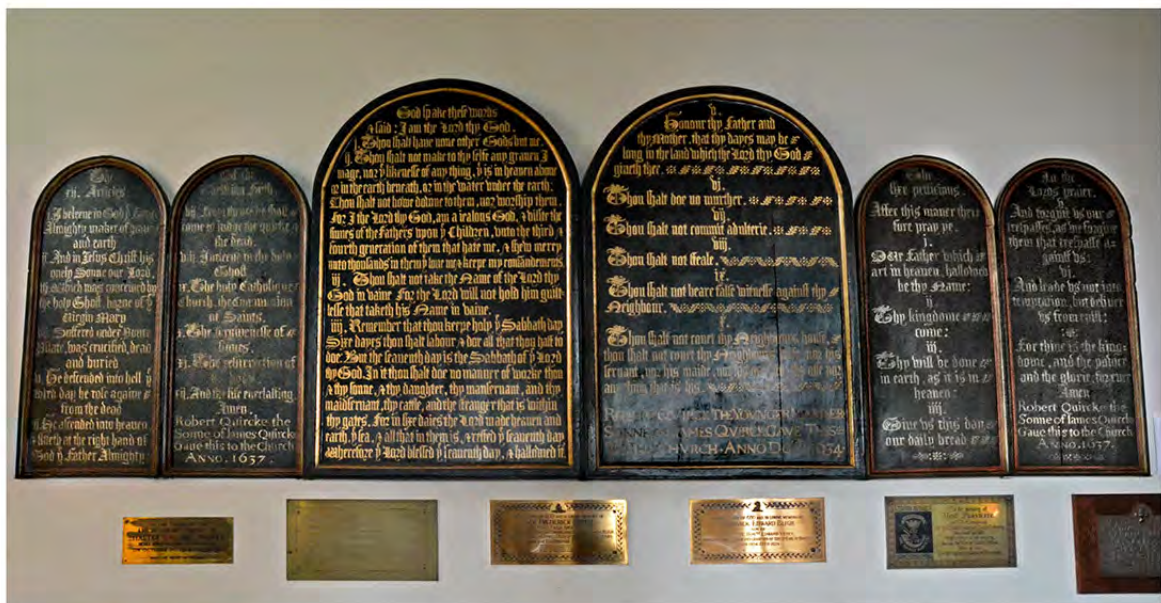 The
xii. Articles
I beleeve in God ye Father
Almighty maker of heaven
and earth
ij. And in Jesus Christ his
onely Sonne our Lord,
the holy Ghost, borne of ye
Virgin Mary
Suffered under Ponce
Pilate, was crucified, dead
and buried
He descended into hell ye
third day he rose againe
from the dead
He ascended into heaven
sitteth at the right hand of
God ye Father Almighty:
come to judge the quicke &
the dead.
viii. I beleeve in the holy
Ghost
ix. The holy Catholique
Church, the Communion
of Saints.
x. The forgivenesse of
sinnes.
xi. The resurrection of
xii. And the life everlasting.
Amen.
Robert Quircke the
Sonne of James Quircke
Gave this to the Church
ANNO. 1637.
God spake these words
& said: I am the Lord thy God.
j. Thou shalt have none other Gods but me.
ij. Thou shalt not make to thy selfe any graven I
mage, nor ye likenesse of any thing, yt is in heaven above
or in the earth beneath, or in the water under the earth:
Thou shalt not bowe downe to them, nor worship them.
For I the Lord thy God, am a jealous God, & visite the
sinnes of the Fathers upon ye Children, unto the third &
fourth generation of them that hate me, & shew mercy
unto thousands in them yt love me & keepe my comandements.
iij. Thou shalt not take the Name of the Lord thy
God in vaine For the Lord will not hold him guilt-
lesse that taketh his Name in vaine.
iiij. Remember that thou keepe holy ye Sabbath day
Sixe dayes thou shalt labour & doe all that thou hast to
doe: But the seaventh day is the Sabbath of ye Lord
thy God. In it thou shalt doe no manner of worke thou
& thy sonne, & thy daughter, thy manservant, and thy
maidservant, thy catle, and the stranger that is within
thy gates. For in sixe daies the Lord made heaven and
earth, ye sea, & all that in them is, & rested ye seaventh day
Wherefore ye Lord blessed ye seaventh day, & hallowed it.
v.
Honour thy Father and
thy Mother, that thy dayes may be
long in the land which the Lord thy God
giveth thee.
vj.
Thou shalt doe no murther.
vij.
Thou shalt not commit adulterie.
viij.
Thou shalt not steale.
ix.
Thou shalt not beare false witnesse against thy
Neighbour.
x.
Thou shalt not covet thy Neighbours house,
thou shalt not covet thy Neighbours wife, nor his
servant, nor his maide, nor his oxe, nor his asse nor
any thing that is his.
ROBERT QUIRCK THE YOUNGER MARINER
SONNE OF JAMES QUIRCK GAVE THIS
CHURCH ANNO DO
The
sixe petitions.
After this maner there
fore pray ye.
i.
Our Father which
art in heaven, hallowed
be thy Name:
ij
Thy kingdome
come:
iij.
Thy will be done
in earth, as it is in
heaven:
iiij.
Give us this day
our daily bread
In the
Lords Praier.
v.
And forgive us our
trespasses, as we forgive
them that trespasse a-
gainst us:
vi.
And leade us not into
temptation, but deliver
us from evill:
For thine is the king-
dome, and the power
and the glorie, for ever
Amen
Robert Quircke the
Sonne of James Quircke
Gave this to the Church
ANNO. 1637.